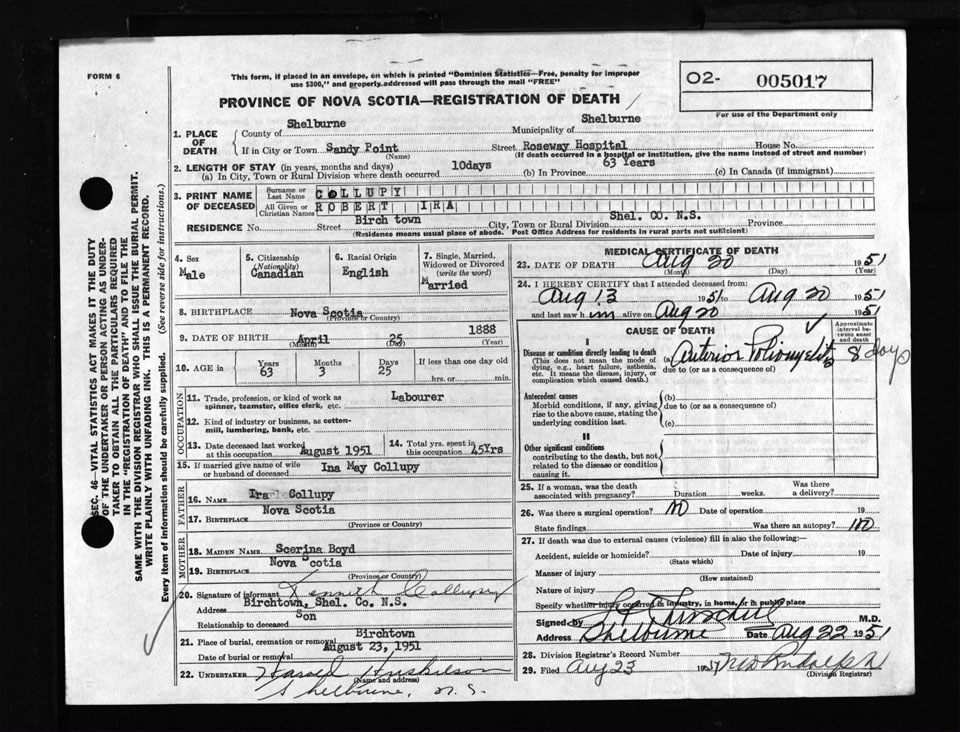 FORM 6
This form, if placed in an envelope, on which is printed "Dominion Statistics—Free, penalty for improper
use $300," and properly addressed will pass through the mail "FREE"
O2- 005017
For use of the Department only
PROVINCE OF NOVA SCOTIA—REGISTRATION OF DEATH
SEC. 46—VITAL STATISTICS ACT MAKES IT THE DUTY
OF THE UNDERTAKER OR PERSON ACTING AS UNDER-
TAKER TO OBTAIN ALL THE PARTICULARS REQUIRED
IN THE "REGISTRATION OF DEATH" AND TO FILE THE
SAME WITH THE DIVISION REGISTRAR WHO SHALL ISSUE THE BURIAL PERMIT.
WRITE PLAINLY WITH UNFADING INK. THIS IS A PERMANENT RECORD.
Every item of information should be carefully supplied. (See reverse side for instructions.)
1. PLACE OF DEATH
County of Shelburne Municipality of Shelburne
If in City or Town Sandy Point Street Roseway Hospital House No.
(Name) (If death occurred in a hospital or institution, give the name instead of street and number)
2. LENGTH OF STAY (in years, months and days)
(a) In City, Town or Rural Division where death occurred 10days (b) In Province 63 Years (c) In Canada (if immigrant)
3. PRINT NAME OF DECEASED
Surname or Last Name COLLUPY
All Given or Christian Names ROBERT IRA
RESIDENCE No. Street Birch town City, Town or Rural Division Shel. CO. N.S. Province
(Residence means usual place of abode. Post Office Address for residents in rural parts not sufficient)
4. Sex
Male
5. Citizenship (Nationality)
Canadian
6. Racial Origin
English
7. Single, Married, Widowed or Divorced (write the word)
Married
8. BIRTHPLACE Nova Scotia
(Province or Country)
9. DATE OF BIRTH April 25 1888
(Month) (Day) (Year)
10. AGE in Years 63 Months 3 Days 25 If less than one day old
hrs. or min.
OCCUPATION
11. Trade, profession, or kind of work as
spinner, teamster, office clerk, etc. Labourer
12. Kind of industry or business, as cotton-
mill, lumbering, bank, etc.
13. Date deceased last worked at this occupation August 1951
14. Total yrs. spent in this occupation 45Yrs
15. If married give name of wife or husband of deceased Ina May Collupy
FATHER
16. NAME Ira Collupy
17. BIRTHPLACE Nova Scotia
(Province or Country)
MOTHER
18. MAIDEN NAME Scerina Boyd
19. BIRTHPLACE Nova Scotia
(Province or Country)
20. Signature of informant Kenneth Collupy
Address Birchtown, Shel. Co. N.S.
Relationship to deceased Son
21. Place of burial, cremation or removal Birchtown
Date of burial or removal August 23, 1951
22. UNDERTAKER Harold Huskilson
(Name and address)
Shelburne, N.S.
MEDICAL CERTIFICATE OF DEATH
23. DATE OF DEATH Aug 20 1951
(Month) (Day) (Year)
24. I HEREBY CERTIFY that I attended deceased from:
Aug 13 1951 to Aug 20 1951
and last saw him alive on Aug 20 1951
CAUSE OF DEATH
Approximate interval between onset and death
I
Disease or condition directly leading to death
(This does not mean the mode of
dying, e.g., heart failure, asthenia,
etc. It means the disease, injury, or
complication which caused death.)
(a) Anterior Poliomyelitis 8 days
due to (or as a consequence of)
Antecedent causes
Morbid conditions, if any, giving
rise to the above cause, stating the
underlying condition last.
(b)
due to (or as a consequence of)
(c)
II
Other significant conditions
contributing to the death, but not
related to the disease or condition
causing it.
25. If a woman, was the death
associated with pregnancy? Duration weeks. Was there a delivery?
26. Was there a surgical operation? no Date of operation 19
State findings Was there an autopsy? no
27. If death was due to external causes (violence) fill in also the following:—
Accident, suicide or homicide? Date of injury 19
(State which)
Manner of injury
(How sustained)
Nature of injury
Specify whether injury occurred in industry, in home, or in public place
Signed by M.D.
Address Shelburne Date Aug 22 1951
28. Division Registrar's Record Number
29. Filed Aug 23 1951
(Division Registrar)